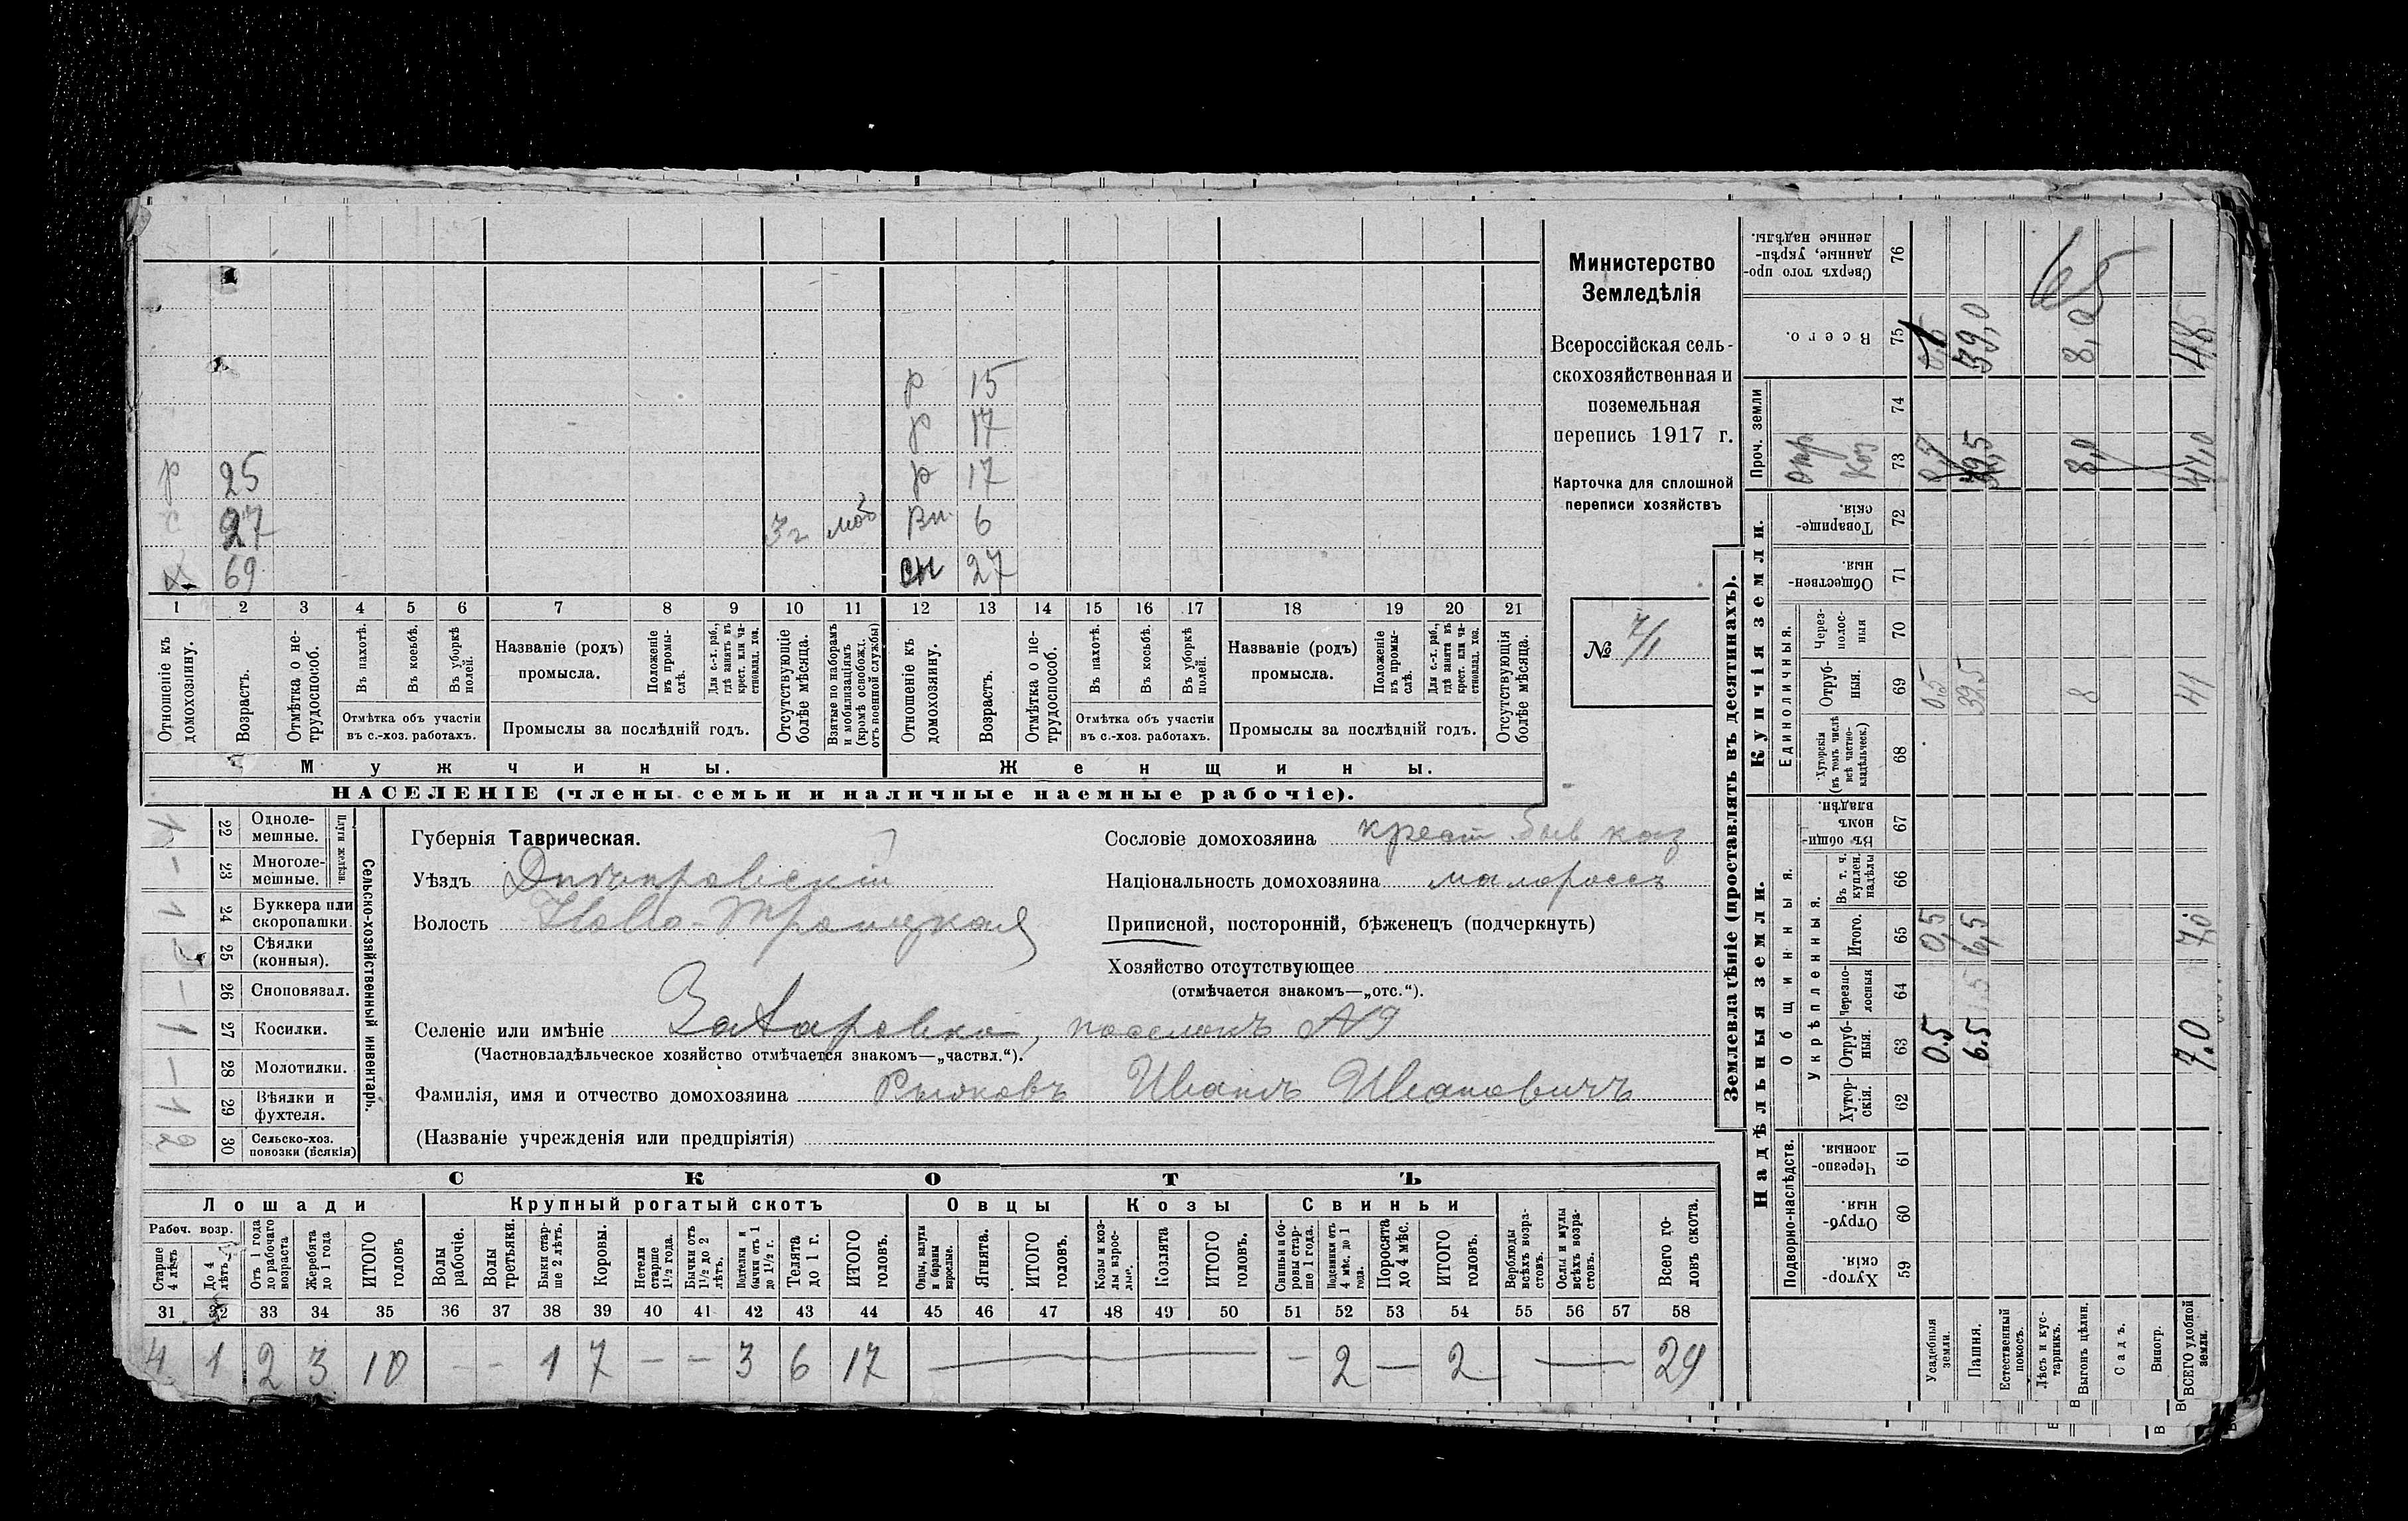 Министерство
Земледѣлія
Всероссійская сель-
скохозяйственная и
поземельная
перепись 1917 г.
Карточка для сплошной
переписи хозяйствъ
№ 7/1
р 15
р 17
р 25 р 17
с 27 3 г моб Вн. 6
х 69 сн 27
1 2 3 4 5 6 7 8 9 10 11 12 13 14 15 16 17 18 19 20 21
Отношеніе къ домохозяину.
Возрастъ.
Отмѣтка о не-трудоспособ.
Въ пахотѣ.
Въ косьбѣ.
Въ уборкѣ полей.
Отмѣтка объ участіи въ с.-хоз. работахъ.
Названіе (родъ) промысла.
Положеніе въ промы-слѣ.
Для с.-х. раб., гдѣ занятъ въ крест. или ча-стновлад. хоз.
Промыслы за послѣдній годъ.
Отсутствующіе болѣе мѣсяца.
Взятые по наборамъ и мобилизаціямъ (кромѣ освобожд. отъ военной службы)
Отношеніе къ домохозяину.
Возрастъ.
Отмѣтка о не-трудоспособ.
Въ пахотѣ.
Въ косьбѣ.
Въ уборкѣ полей.
Отмѣтка объ участіи въ с.-хоз. работахъ.
Названіе (родъ) промысла.
Положеніе въ промы-слѣ.
Для с.-х. раб., гдѣ занята въ крест. или ча-стновлад. хоз.
Промыслы за послѣдній годъ.
Отсутствующія болѣе мѣсяца.
Мужчины. Женщины.
НАСЕЛЕНІЕ (члены семьи и наличные наемные рабочіе).
Сельско-хозяйственный инвентарь.
Плуги желѣзн.
1 22 Одноле-мешные.
– 23 Многоле-мешные.
1 24 Буккера или скоропашки
25 Сѣялки (конныя).
– 26 Сноповязал.
1 27 Косилки.
– 28 Молотилки.
1 29 Вѣялки и фухтеля.
2 30 Сельско-хоз. повозки (всякія)
Губернія Таврическая.
Уѣздъ Днѣпровскій
Волость Ново-Троицкая
Селеніе или имѣніе Захаровка, поселокъ №9
(Частновладѣльческое хозяйство отмѣчается знакомъ—„частвл.“).
Фамилія, имя и отчество домохозяина Рыжковъ Иванъ Ивановичъ
(Названіе учрежденія или предпріятія)
Сословіе домохозяина крест быв каз
Національность домохозяина малороссъ
Приписной, посторонній, бѣженецъ (подчеркнуть)
Хозяйство отсутствующее
(отмѣчается знакомъ—„отс.“).
СКОТЪ
Лошади Крупный рогатый скотъ Овцы Козы Свиньи
Рабоч. возр.
Старше 4 лѣтъ
До 4 лѣтъ
Отъ 1 года до рабочаго возраста
Жеребята до 1 года
ИТОГО головъ
Волы рабочіе.
Волы третьяки.
Быки стар-ше 2 лѣтъ.
Коровы.
Нетели старше 1½ года.
Бычки отъ 1½ до 2 лѣтъ.
Подтелки и бычки отъ 1 до 1½ г.
Телята до 1 г.
ИТОГО головъ.
Овцы, валухи и бараны взрослые.
Ягнята.
ИТОГО головъ.
Козы и коз-лы взрос-лые.
Козлята
ИТОГО головъ.
Свиньи и бо-ровы стар-ше 1 года.
Подсвинки отъ 4 мѣс. до 1 года.
Поросята до 4 мѣс.
ИТОГО головъ.
Верблюды всѣхъ возра-стовъ.
Ослы и мулы всѣхъ возра-стовъ.
Всего го-ловъ скота.
31 32 33 34 35 36 37 38 39 40 41 42 43 44 45 46 47 48 49 50 51 52 53 54 55 56 57 58
4 1 2 3 10 – – 1 7 – – 3 6 17 – – 2 – 2 – 29
Землевладѣніе (проставлять въ десятинахъ).
Надѣльныя земли. Купчія земли. Проч. земли
Подворно-наслѣдств.
Общинныя.
Укрѣпленныя.
Единоличныя.
Хутор-скія. 59
Отруб-ныя. 60
Черезпо-лосныя 61
Хутор-скія. 62
Отруб-ныя. 63
Черезпо-лосныя 64
Итого. 65
Въ т. ч. куплен. надѣлы 66
Въ общин-номъ владѣн. 67
Хуторскія (въ томъ числѣ всѣ частно-владѣльческ.) 68
Отруб-ныя. 69
Через-полос-ныя 70
Обществен-ныя. 71
Товарище-скія. 72
73
74
Всего. 75
Сверхъ того про-данные, укрѣп-ленные надѣлы. 76
Усадебныя земли. 0.5 0,5 0.5
Пашня. 6.5 6,5 32,5 32,5 39,0
Естественный покосъ.
Лѣсъ и кус-тарникъ.
Выгонъ цѣлин. 8 8,0 8,0
Садъ.
Виногр.
ВСЕГО удобной земли. 7.0 7,0 41 41,0 48
65